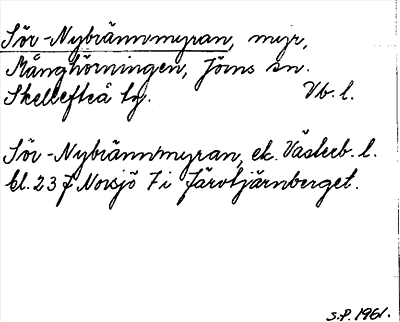 Sör-Nybrännmyran, myr,
Månghörningen, Jörns sn.
Skellefteå tg. Vb. l.
Sör-Nybrännmyran, ek. Västerb. l.
bl. 23 F Norsjö 7 i Järvtjärnberget.
S.P. 1961.